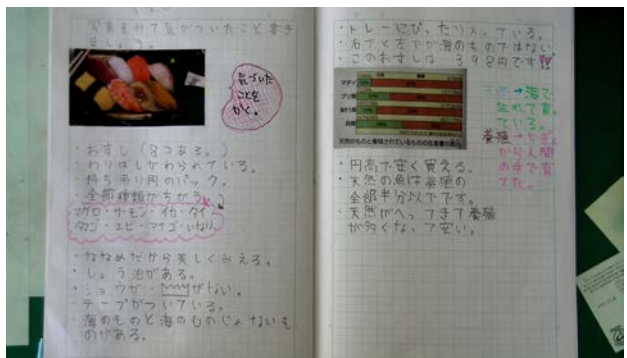 写真を見て気がついたことを書き
ましょう。
気づいた
ことを
かく。
・おすし(8コある。)
・わりばしがわられている。
・持ち帰り用のパック。
・全部種類がちがう。
マグロ・サーモン・イカ・タイ
タマゴ・エビ・アナゴ・いなり
・ななめだから美しくみえる。
・しょう油がある。
・ショウガ・がない。
・テープがついている。
・海のものと海のものじゃないも
のがある。
・トレーにぴったり入っている。
・右下と左下が海のものではない
・このおすしは398円です!!
マダイ
ブリ類
天然のものと養殖されているものの生産量の割合
天然→海で
生れて育っ
ている。
養殖→ちぎょ
から人間
の手で育
てた。
・円高で安く買える。
・天然の魚は養殖の
全部半分以下です。
・天然がへってきて養殖
が多くなって安い。